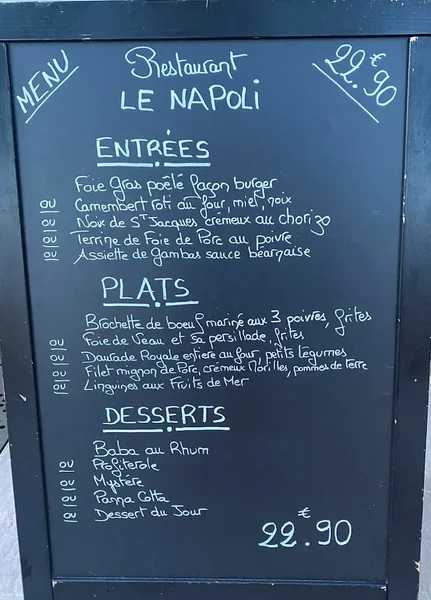 MENU
Restaurant
22.90€
LE NAPOLI
ENTRÉES
Foie Gras poêlé façon burger
ou Camembert roti au four, miel, noix
ou Noix de St Jacques crémeux au chorizo
ou Terrine de Foie de Porc au poivre
ou Assiette de gambas sauce béarnaise
PLATS
Brochette de boeuf mariné aux 3 poivres, frites
ou Foie de Veau et sa persillade, frites
ou Daurade Royale entière au four, petits légumes
ou Filet mignon de Porc, crémeux Morilles, pommes de terre
ou Linguines aux Fruits de Mer
DESSERTS
Baba au Rhum
ou Profiterole
ou Mystère
ou Panna Cotta
ou Dessert du Jour
22.90€